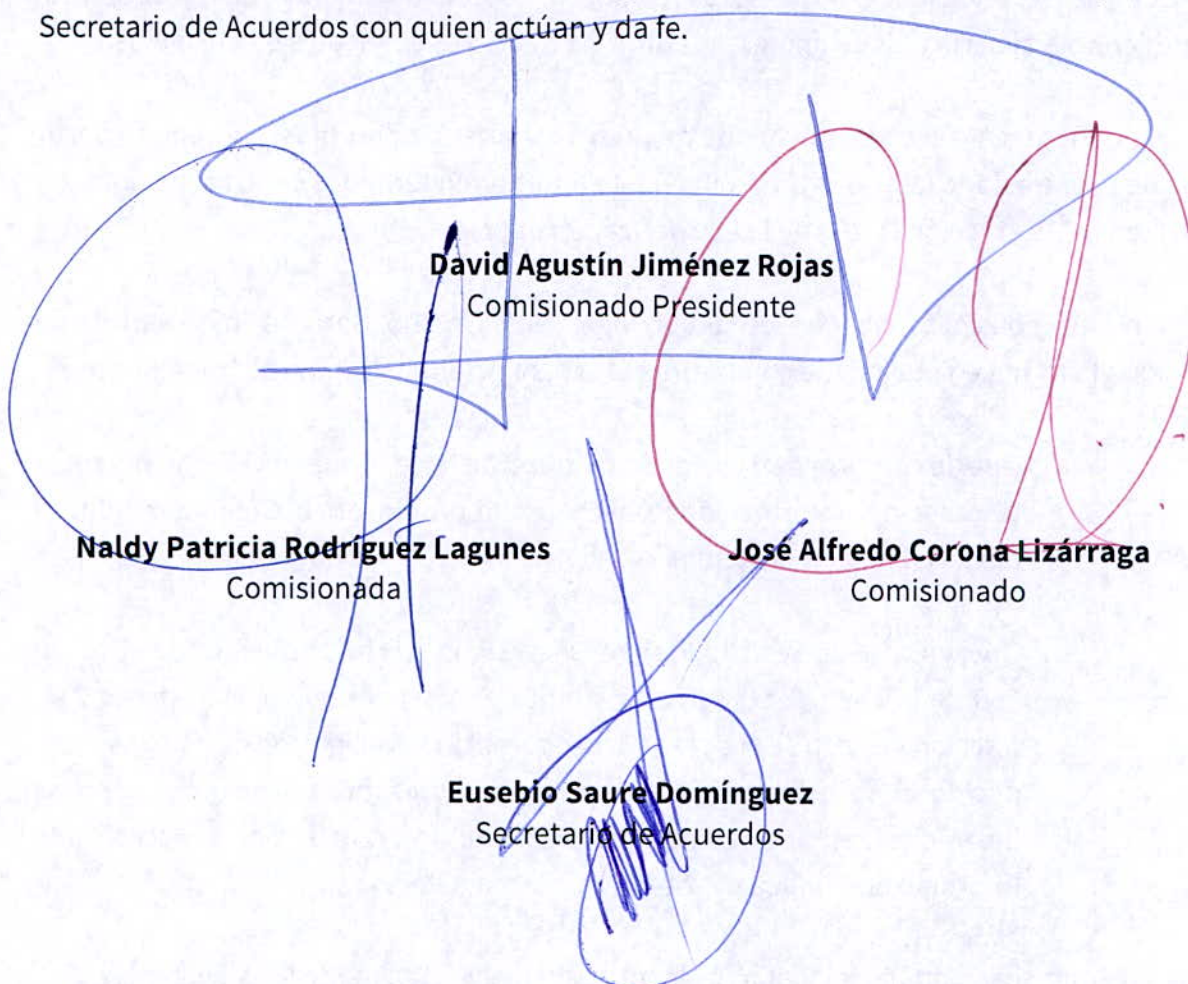 Secretario de Acuerdos con quien actúan y da fe.
David Agustín Jiménez Rojas
Comisionado Presidente
Naldy Patricia Rodríguez Lagunes
Comisionada
José Alfredo Corona Lizárraga
Comisionado
Eusebio Saure Domínguez
Secretario de Acuerdos